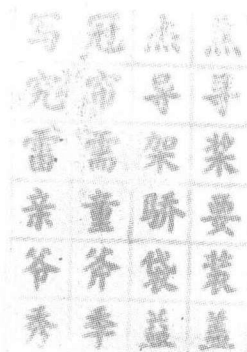 写 冠 杰 点
究 帘 导 寻
雷 需 架 桨
亲 童 要
爷 斧 袋 装
秀 季 益 盖